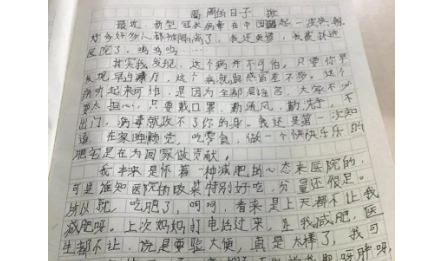 隔离的日子
最近，新型冠状病毒在中国引起一波热潮，
好多好多人都被隔离了，我还要惨，我被抓进
医院了，呜呜呜……
其实我发现，这个病并不可怕，只要你早
发现早治疗，这个病就跟感冒差不多，这个
病听起来可怕，是因为全部后活着，大家不必
要太担心，只要戴口罩，勤通风，勤洗手，不
出门，病毒就找不了你的身。我还是第一次知
道，在家睡睡觉，吃零食，做一个快快乐乐的
肥宅是在为国家做贡献。
我本来是怀着一种减肥的心态来医院的，
可是谁知医院的饭菜特别好吃，分量还很足。
所以就，吃肥了，呵呵，看来是上天都不让我
减肥呀。上次妈妈打电话过来，让我减肥，医
生都不让，说是要验大便，真是太棒了，我可